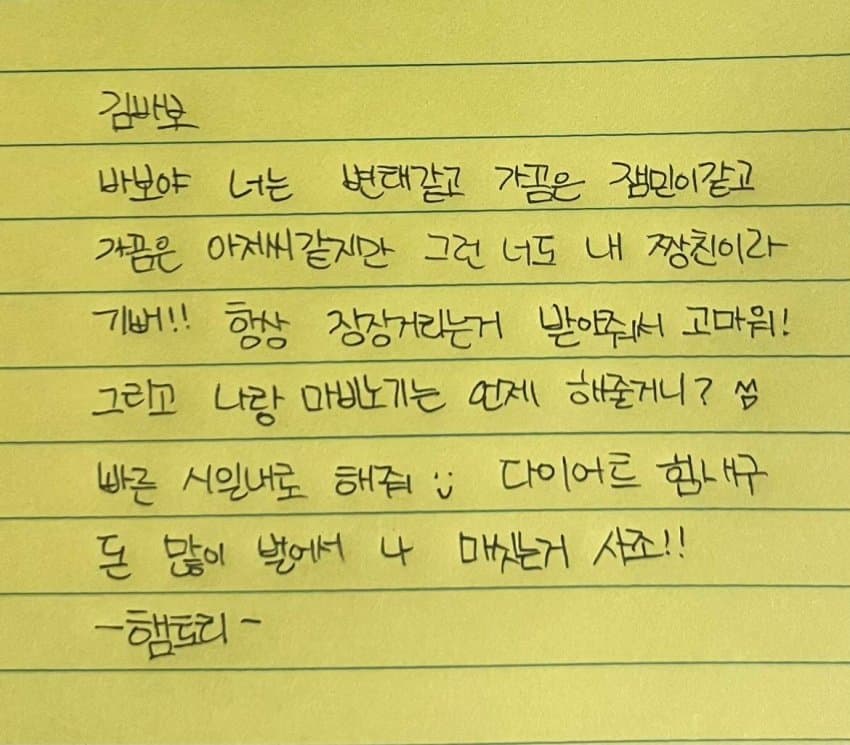 김바보
바보야 너는 변태같고 가끔은 잼민이같고
가끔은 아저씨같지만 그런 너도 내 짱친이라
기뻐!! 항상 장장거리는거 받아줘서 고마워!
그리고 나랑 마비노기는 언제 해줄거니? 썸
빠른 시일내로 해줘 :) 다이어트 힘내구
돈 많이 벌어서 나 매짓는거 사죠!!
-햄토리-